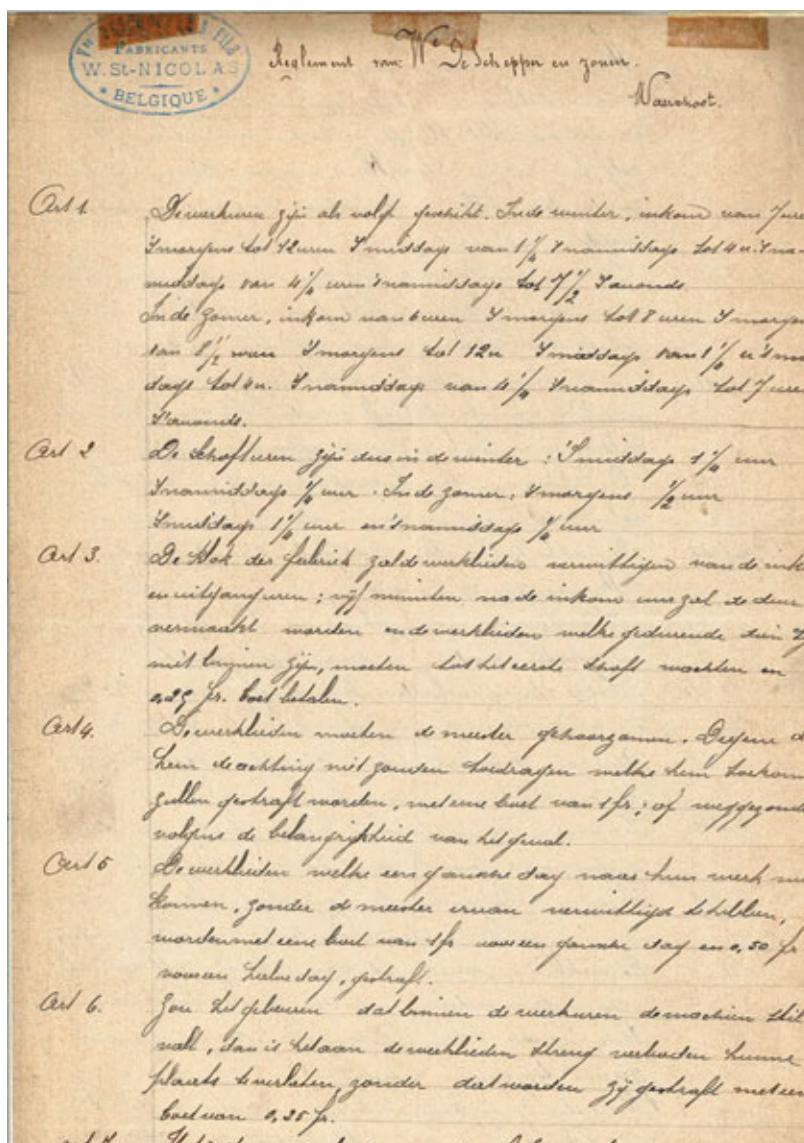 & FILS
FABRICANTS
W. St-NICOLAS
BELGIQUE
Reglement van We De Schepper en zonen.
Waerschoot.
Art 1. De werkuren zijn als volgt geschikt. In de winter, inkom van 7 uren
'smorgens tot 12 uren 'smiddags van 1 1/4 'snamiddags tot 4 u. 'sna-
middags van 4 1/4 uren 'snamiddags tot 7 1/2 'savonds
In de zomer, inkom van 6 uren 'smorgens tot 8 uren 'smorgens
van 8 1/2 uren 'smorgens tot 12 u 'smiddags van 1 1/4 u
dags tot 4 u. 'snamiddags van 4 1/4 'snamiddags tot 7 uren
'savonds.
Art 2 De schofturen zijn dus in de winter : 'Smiddags 1 1/4 uur
'snamiddags 1/4 uur. In de zomer, 'smorgens 1/2 uur
'smiddags 1 1/4 uur en 'snamiddags 1/4 uur
Art 3. De klok der fabriek zal de werklieden verwittigen van de ink
en uitganguren ; vijf minuten na de inkom uur zal de deur
vermaakt worden en de werklieden welke gedurende dien
niet binnen zijn, moeten tot het eerste schoft wachten en
0,25 fr. boet betalen.
Art 4. De werklieden moeten de meester gehoorzamen. Degene d
hem de achting niet zouden toedragen welke hem toekom
zullen gestraft worden, met eene boet van 1 fr ; of weggezonde
volgens de belangrijkheid van het geval.
Art 5 De werklieden welke een gansche dag naar hun werk ni
komen, zonder de meester ervan verwittigd te hebben,
worden met eene boet van 1 fr voor een gansche dag en 0,50 fr
voor een halve dag, gestraft.
Art 6. Zou het gebeuren dat binnen de werkuren de machien stil
valt, dan is het aan de werklieden streng verboden hunne
plaats te verlaten, zonder dat worden zij gestraft met een
boet van 0,25 fr.